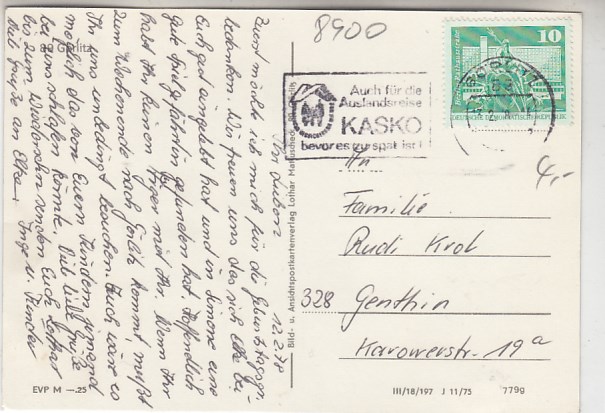 8900
10
Berlin Rathausstraße
DEUTSCHE DEMOKRATISCHE REPUBLIK
GÖRLITZ
Auch für die
Auslandsreise
KASKO
bevor es zu spät ist!
4,-
An
Familie
Rudi Krol
328 Genthin
Karowerstr. 19a
III/18/197 J 11/75 779g
Bild- u. Ansichtspostkartenverlag Lothar Matuscheck, 89 Görlitz
aus Görlitz
EVP M —.25
12.2.78
Ihr Lieben
Zuerst möchte ich mich für die Geburtstagsgr.
bedanken. Wir freuen uns das sich Elke bei
Euch gut eingelebt hat und in Simone eine
gute Spielgefährtin gefunden hat. Hoffentlich
habt Ihr keinen Ärger mit Ihr. Wenn Ihr
zum Wochenende nach Görlitz kommt, müßt
Ihr uns unbedingt besuchen. Euch wäre es
möglich das von Euern Kindern jemand
bei uns schlafen könnte. Viele liebe Grüße
bis zum Wiedersehn senden Euch Lothar
Viele Grüße an Elke. Inge u. Kinder